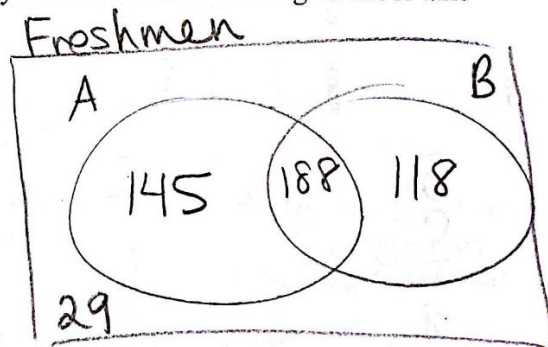 Freshmen
A
B
145
188
118
29